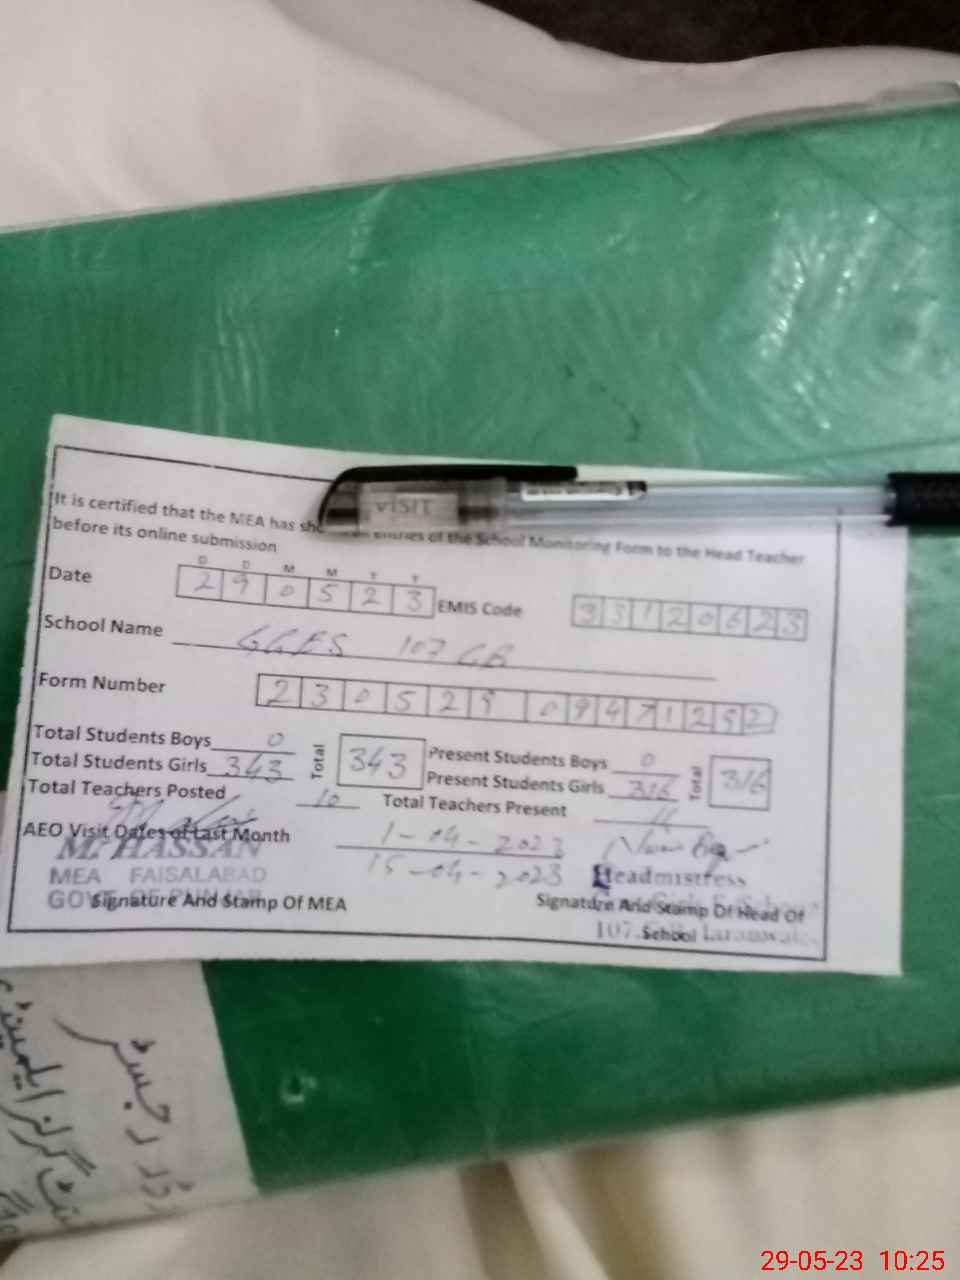 VISIT
It is certified that the MEA has entries of the School Monitoring Form to the Head Teacher
before its online submission
D D M M Y Y
Date 2 9 0 5 2 3 EMIS Code 3 3 1 2 0 6 2 3
School Name GGES 107 GB
Form Number 2 3 0 5 2 9 0 9 4 7 1 2 9 2
Total Students Boys 0 Total 343 Present Students Boys 0 Total 316
Total Students Girls 343 Present Students Girls 316
Total Teachers Posted 10 Total Teachers Present
AEO Visit Dates of Last Month 1-04-2023
15-04-2023
Mr HASSAN
MEA FAISALABAD
GOVT OF PUNJAB
Headmistress
Signature And Stamp Of MEA Signature And Stamp Of Head Of
School
107
رجسٹر
گرلز ایلیمینٹری
29-05-23 10:25